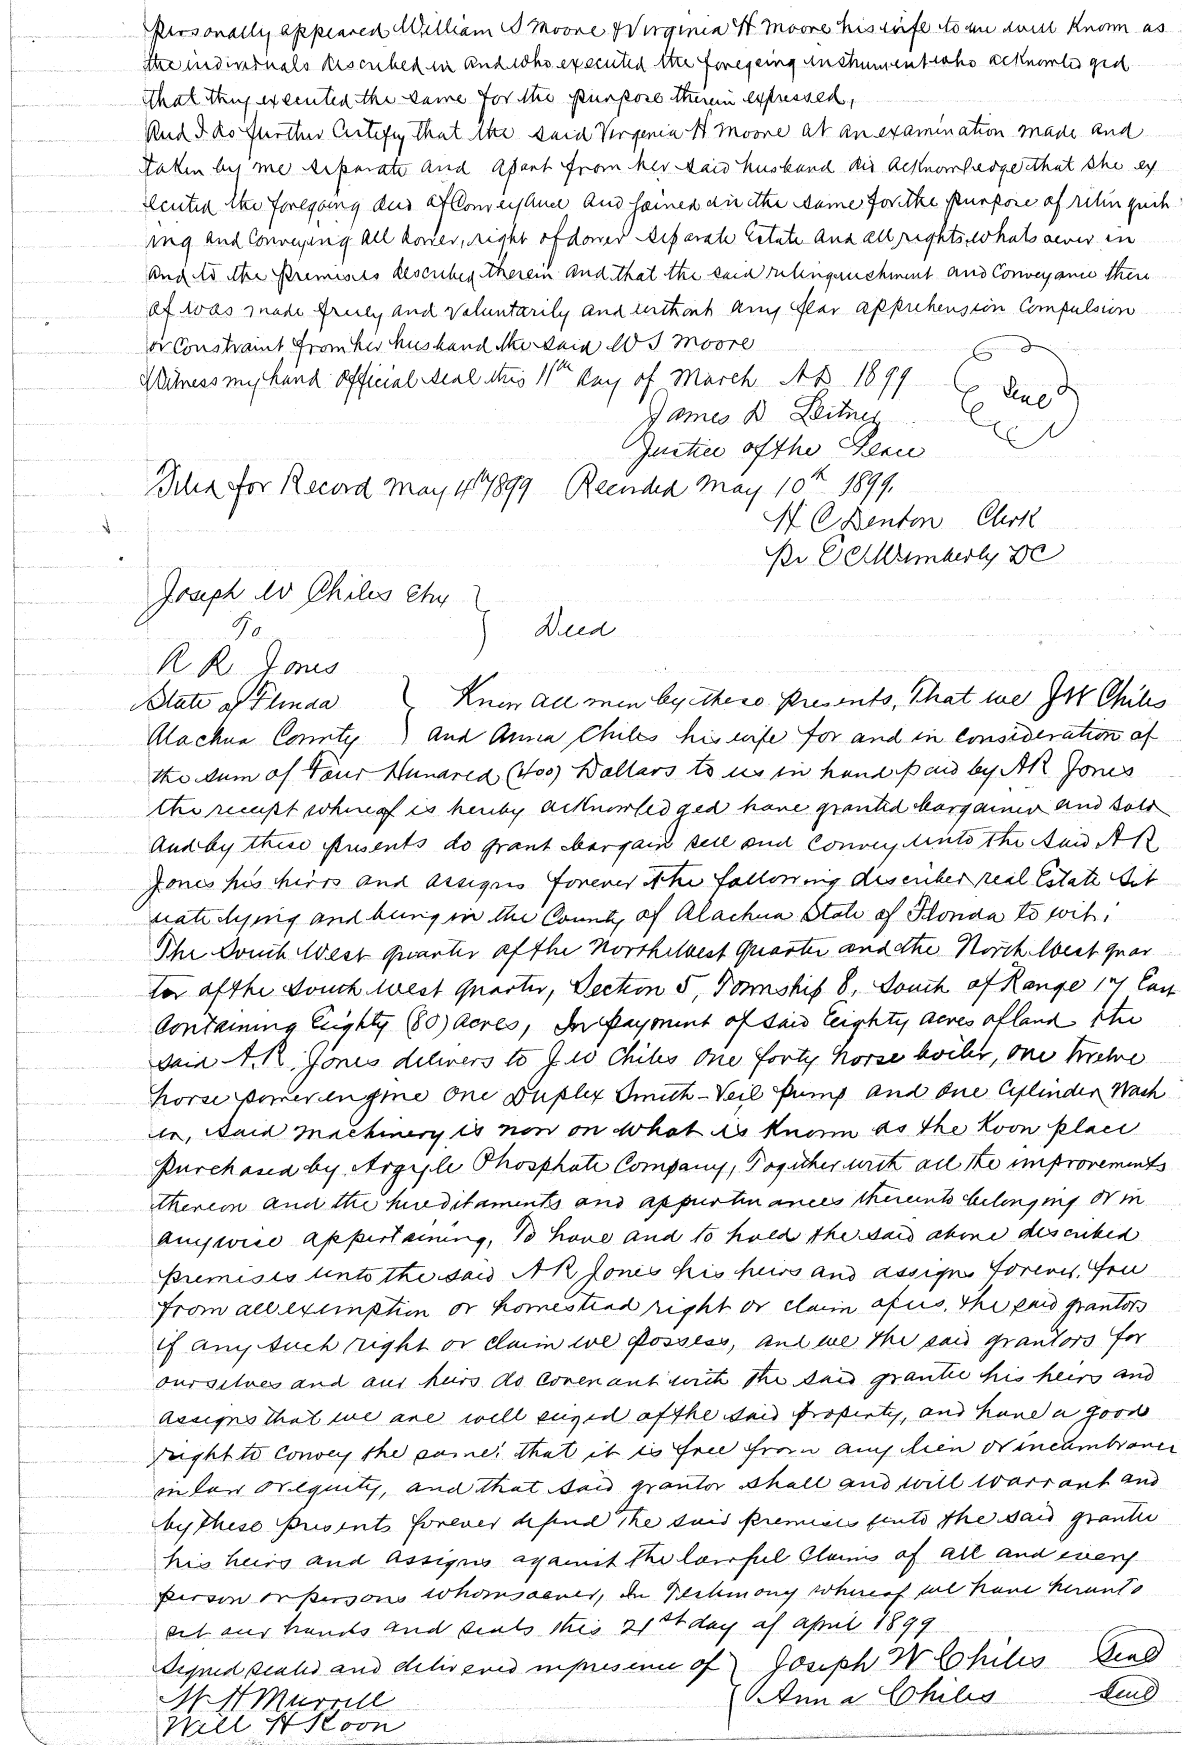 Personally appeared William S Moore & Virginia H Moore his wife to me well known as
the individuals described in and who executed the foregoing instrument who acknowledged
that they executed the same for the purpose therein expressed,
And I do further Certify that the said Virginia H Moore at an examination made and
taken by me separate and apart from her said husband did acknowledge that she ex
ecuted the foregoing deed of Conveyance and joined in the same for the purpose of relinquish
ing and Conveying all dower, right of dower separate Estate and all rights whatsoever in
and to the premises described therein and that the said relinquishment and Conveyance there
of was made freely and voluntarily and without any fear apprehension Compulsion
or Constraint from her husband the said W S Moore
Witness my hand official seal this 11th day of March AD 1899
Seal
James D Leitner
Justice of the Peace
Filed for Record May 4th 1899 Recorded May 10th 1899.
H C Denton Clerk
Pr E C Wimberly DC
Joseph W Chiles etux
To
Deed
A R Jones
State of Florida } Know all men by these presents, That we J W Chiles
Alachua County } and Anna Chiles his wife for and in Consideration of
the sum of Four Hundred (400) Dollars to us in hand paid by A R Jones
the receipt whereof is hereby acknowledged have granted bargained and sold
And by these presents do grant bargain sell and Convey unto the said A R
Jones his heirs and assigns forever the following described real Estate sit
uate lying and being in the County of Alachua State of Florida to wit:
The South West quarter of the North West Quarter and the North West quar
ter of the South west quarter, Section 5, Township 8, South of Range 17 East
Containing Eighty (80) Acres, In payment of said Eighty acres of land the
said A. R. Jones delivers to J. W Chiles one forty horse boiler, one twelve
horse power engine one Duplex Smith-Veil pump and one Cylinder Wash
er, said machinery is now on what is known as the Koon place
purchased by Argyle Phosphate Company, Together with all the improvements
thereon and the hereditaments and appurtenances thereunto belonging or in
anywise appertaining, To have and to hold the said above described
premises unto the said A R Jones his heirs and assigns forever, free
from all exemption or homestead right or claim of us, the said grantors
if any such right or claim we possess, and we the said grantors for
ourselves and our heirs do Covenant with the said grantee his heirs and
assigns that we are well seized of the said property, and have a good
right to convey the same; that it is free from any lien or incumbrance
in law or equity, and that said grantor shall and will warrant and
by these presents forever defend the said premises unto the said grantee
his heirs and assigns against the lawful Claims of all and every
person or persons whomsoever, In Testimony whereof we have hereunto
set our hands and seals this 21st day of April 1899
Signed sealed and delivered in presence of } Joseph W Chiles Seal
W H Murrell } Anna Chiles Seal
Will H Koon